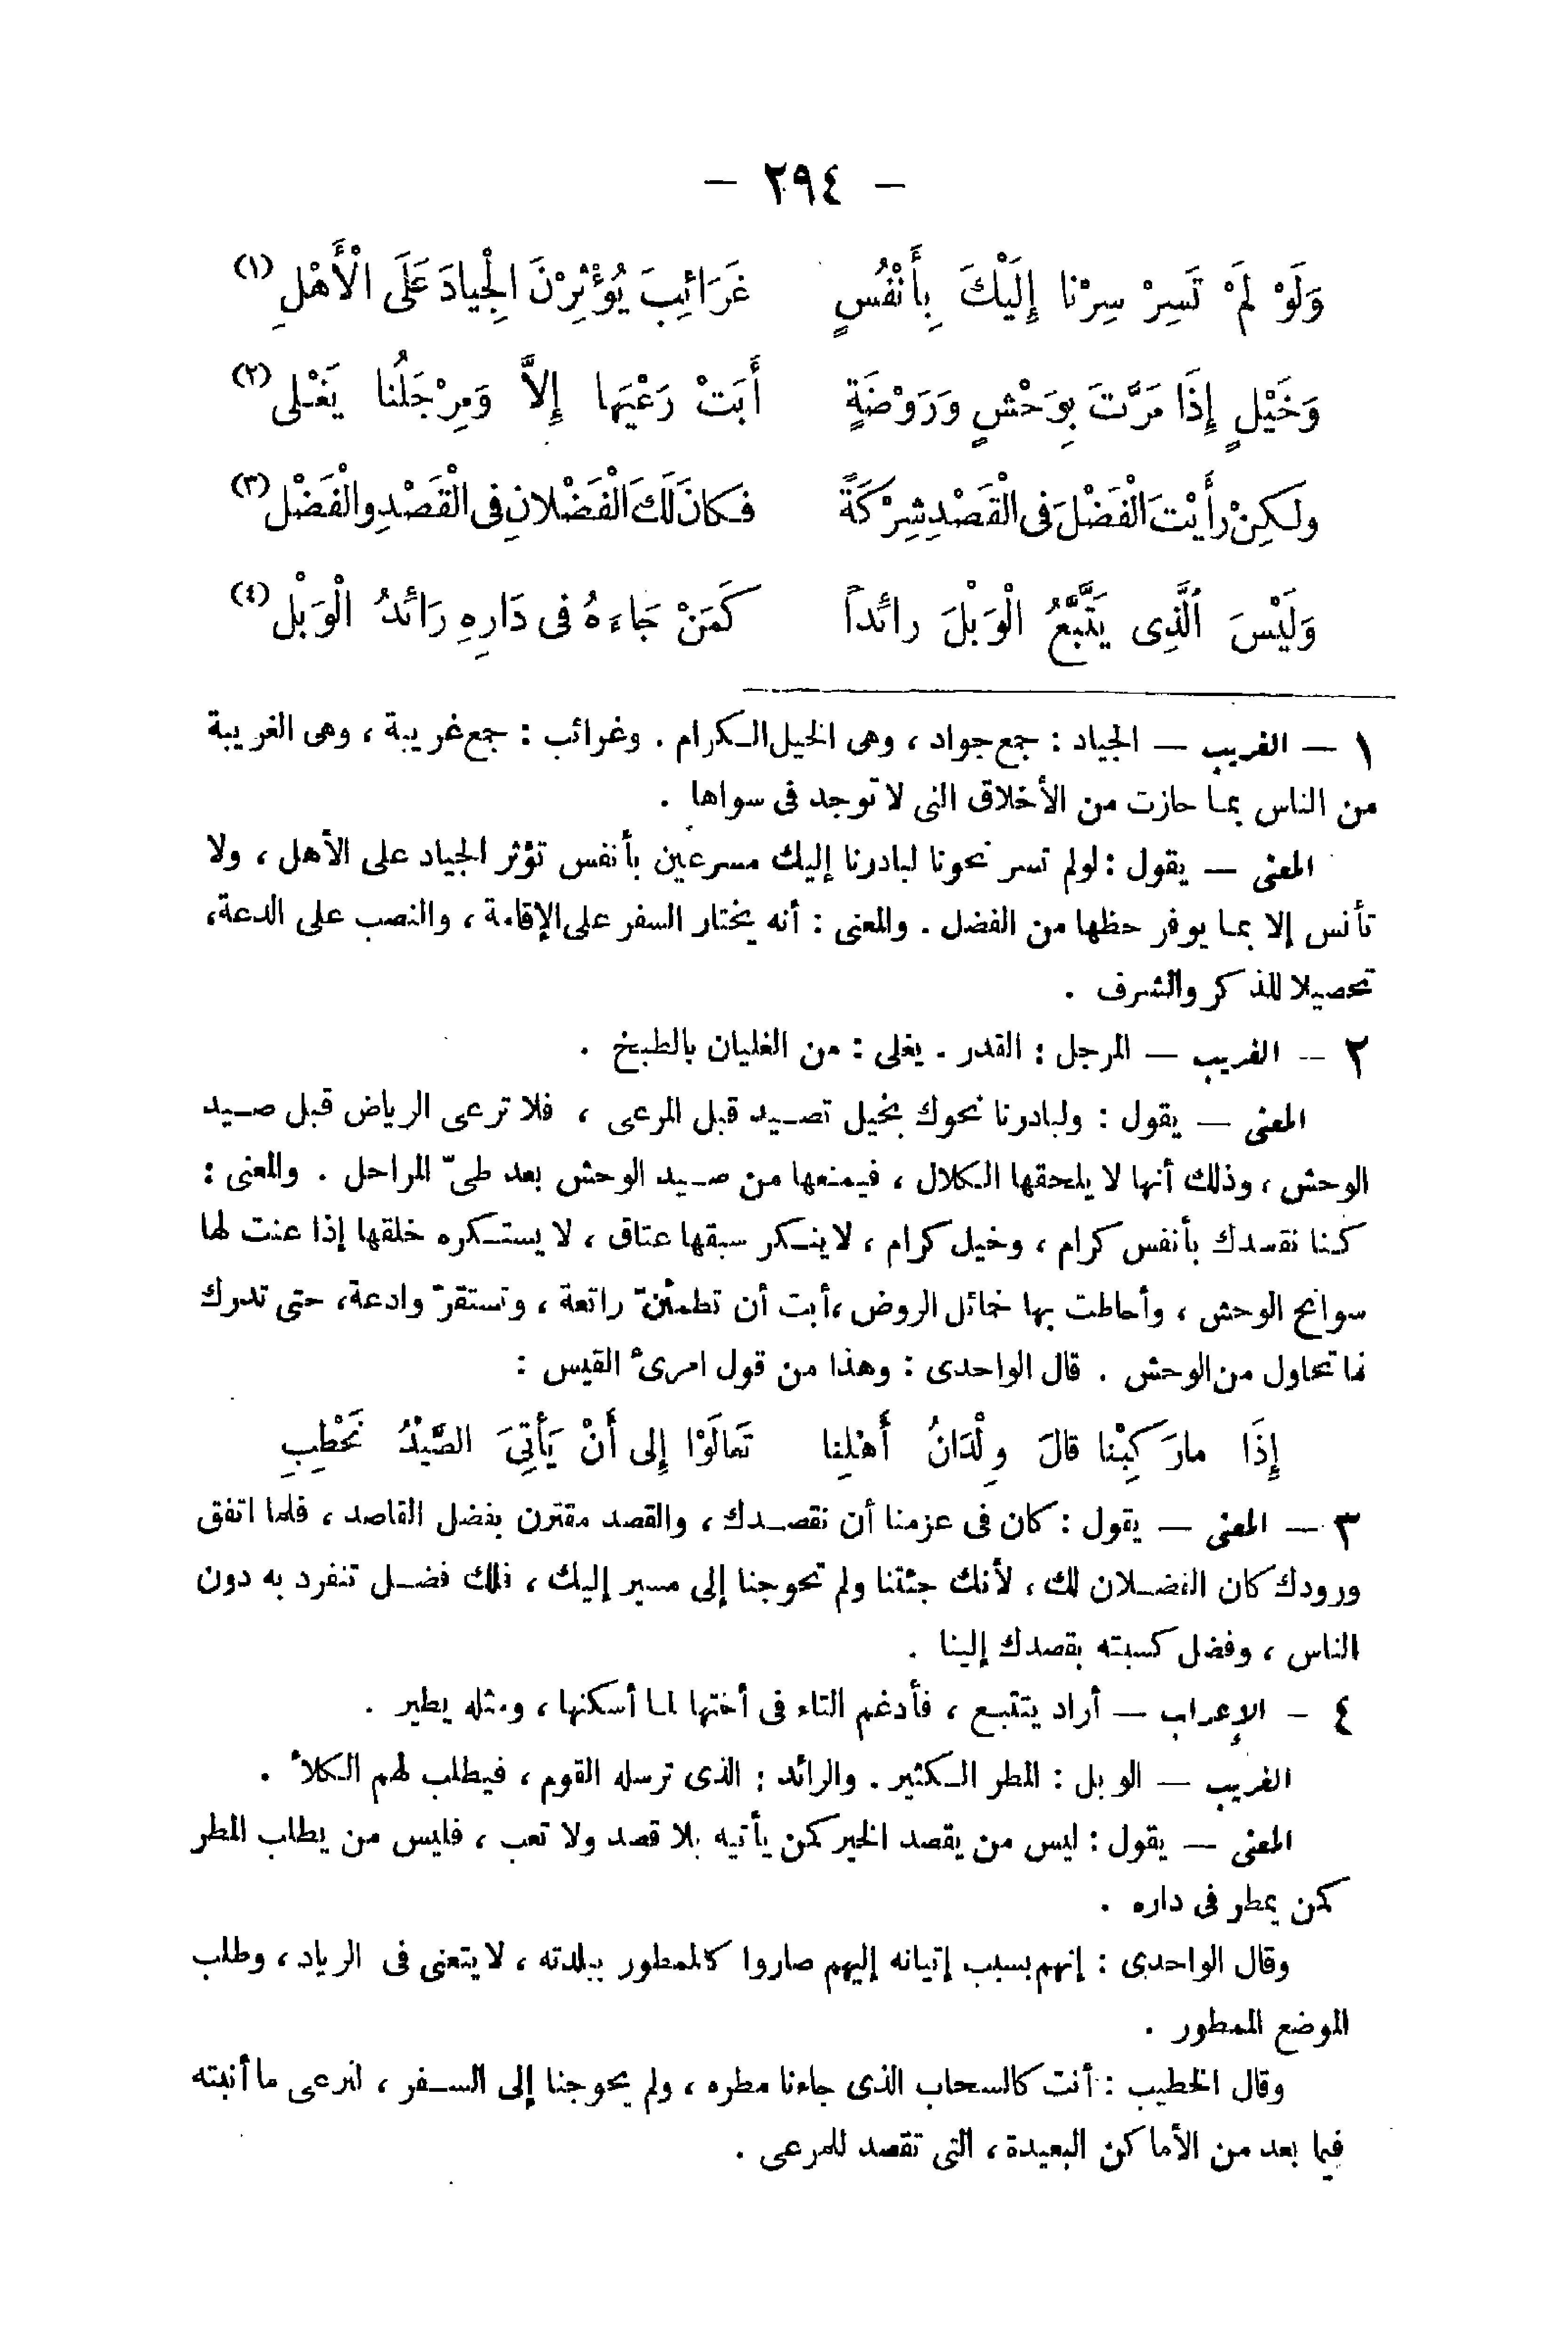 — ٢٩٤ —
وَلَوْ لَمْ تَسِرْ سِرْنا إِلَيْكَ بِأَنْفُسٍ غَرَائِبَ يُؤْثِرْنَ الْجِيادَ عَلَى الْأَهْلِ (١)
وَخَيْلٍ إِذَا مَرَّتْ بِوَحْشٍ وَرَوْضَةٍ أَبَتْ رَعْيَها إِلاَّ وَمِرْجَلُنا يَغْلى (٢)
ولكِنْ رأَيْتَ الْفَضْلَ فى الْقَصْدِ شِرْكَةً فكانَ لَكَ الْفَضْلانِ فى الْقَصْدِ والْفَضْلِ (٣)
وَلَيْسَ الَّذِى يَتَّبَّعُ الْوَبْلَ رائداً كَمَنْ جَاءَهُ فى دَارِهِ رَائدُ الْوَبْلِ (٤)
١ — الغريب — الجياد : جمع جواد ، وهى الخيل الكرام . وغرائب : جمع غريبة ، وهى الغريبة
من الناس بما حازت من الأخلاق التى لا توجد فى سواها .
المعنى — يقول : لو لم تسر نحونا لبادرنا إليك مسرعين بأنفس تؤثر الجياد على الأهل ، ولا
تأنس إلا بما يوفر حظها من الفضل . والمعنى : أنه يختار السفر على الإقامة ، والنصب على الدعة،
تحصيلا للذكر والشرف .
٢ -- الغريب — المرجل : القدر . يغلى : من الغليان بالطبخ .
المعنى — يقول : ولبادرنا نحوك بخيل تصيد قبل المرعى ، فلا ترعى الرياض قبل صيد
الوحش ، وذلك أنها لا يلحقها الكلال ، فيمنعها من صيد الوحش بعد طىّ المراحل . والمعنى :
كنا نقصدك بأنفس كرام ، وخيل كرام ، لا ينكر سبقها عتاق ، لا يستكره خلقها إذا عنت لها
سوانح الوحش ، وأحاطت بها خمائل الروض ،أبت أن تطمئنّ راتعة ، وتستقرّ وادعة، حتى تدرك
ما تحاول من الوحش . قال الواحدى : وهذا من قول امرئ القيس :
إِذَا ما رَكِبْنا قالَ وِلْدَانُ أَهْلِنا تَعالَوْا إِلى أَنْ يَأْتِىَ الصَّيْدُ نَحْطِبِ
٣ — المعنى — يقول : كان فى عزمنا أن نقصدك ، والقصد مقترن بفضل القاصد ، فلما اتفق
ورودك كان الفضلان لك ، لأنك جئتنا ولم تحوجنا إلى مسير إليك ، فلك فضل تنفرد به دون
الناس ، وفضل كسبته بقصدك إلينا .
٤ - الإعراب — أراد يتتبع ، فأدغم التاء فى أختها لما أسكنها ، ومثله يطير .
الغريب — الوبل : المطر الكثير . والرائد : الذى ترسله القوم ، فيطلب لهم الكلأ .
المعنى — يقول : ليس من يقصد الخير كمن يأتيه بلا قصد ولا تعب ، فليس من يطلب المطر
كمن يمطر فى داره .
وقال الواحدى : إنهم بسبب إتيانه إليهم صاروا كالممطور ببلدته ، لا يتعنى فى الرياد ، وطلب
الموضع الممطور .
وقال الخطيب : أنت كالسحاب الذى جاءنا مطره ، ولم يحوجنا إلى السفر ، لنرعى ما أنبته
فيما بعد من الأماكن البعيدة ، التى تقصد للمرعى .